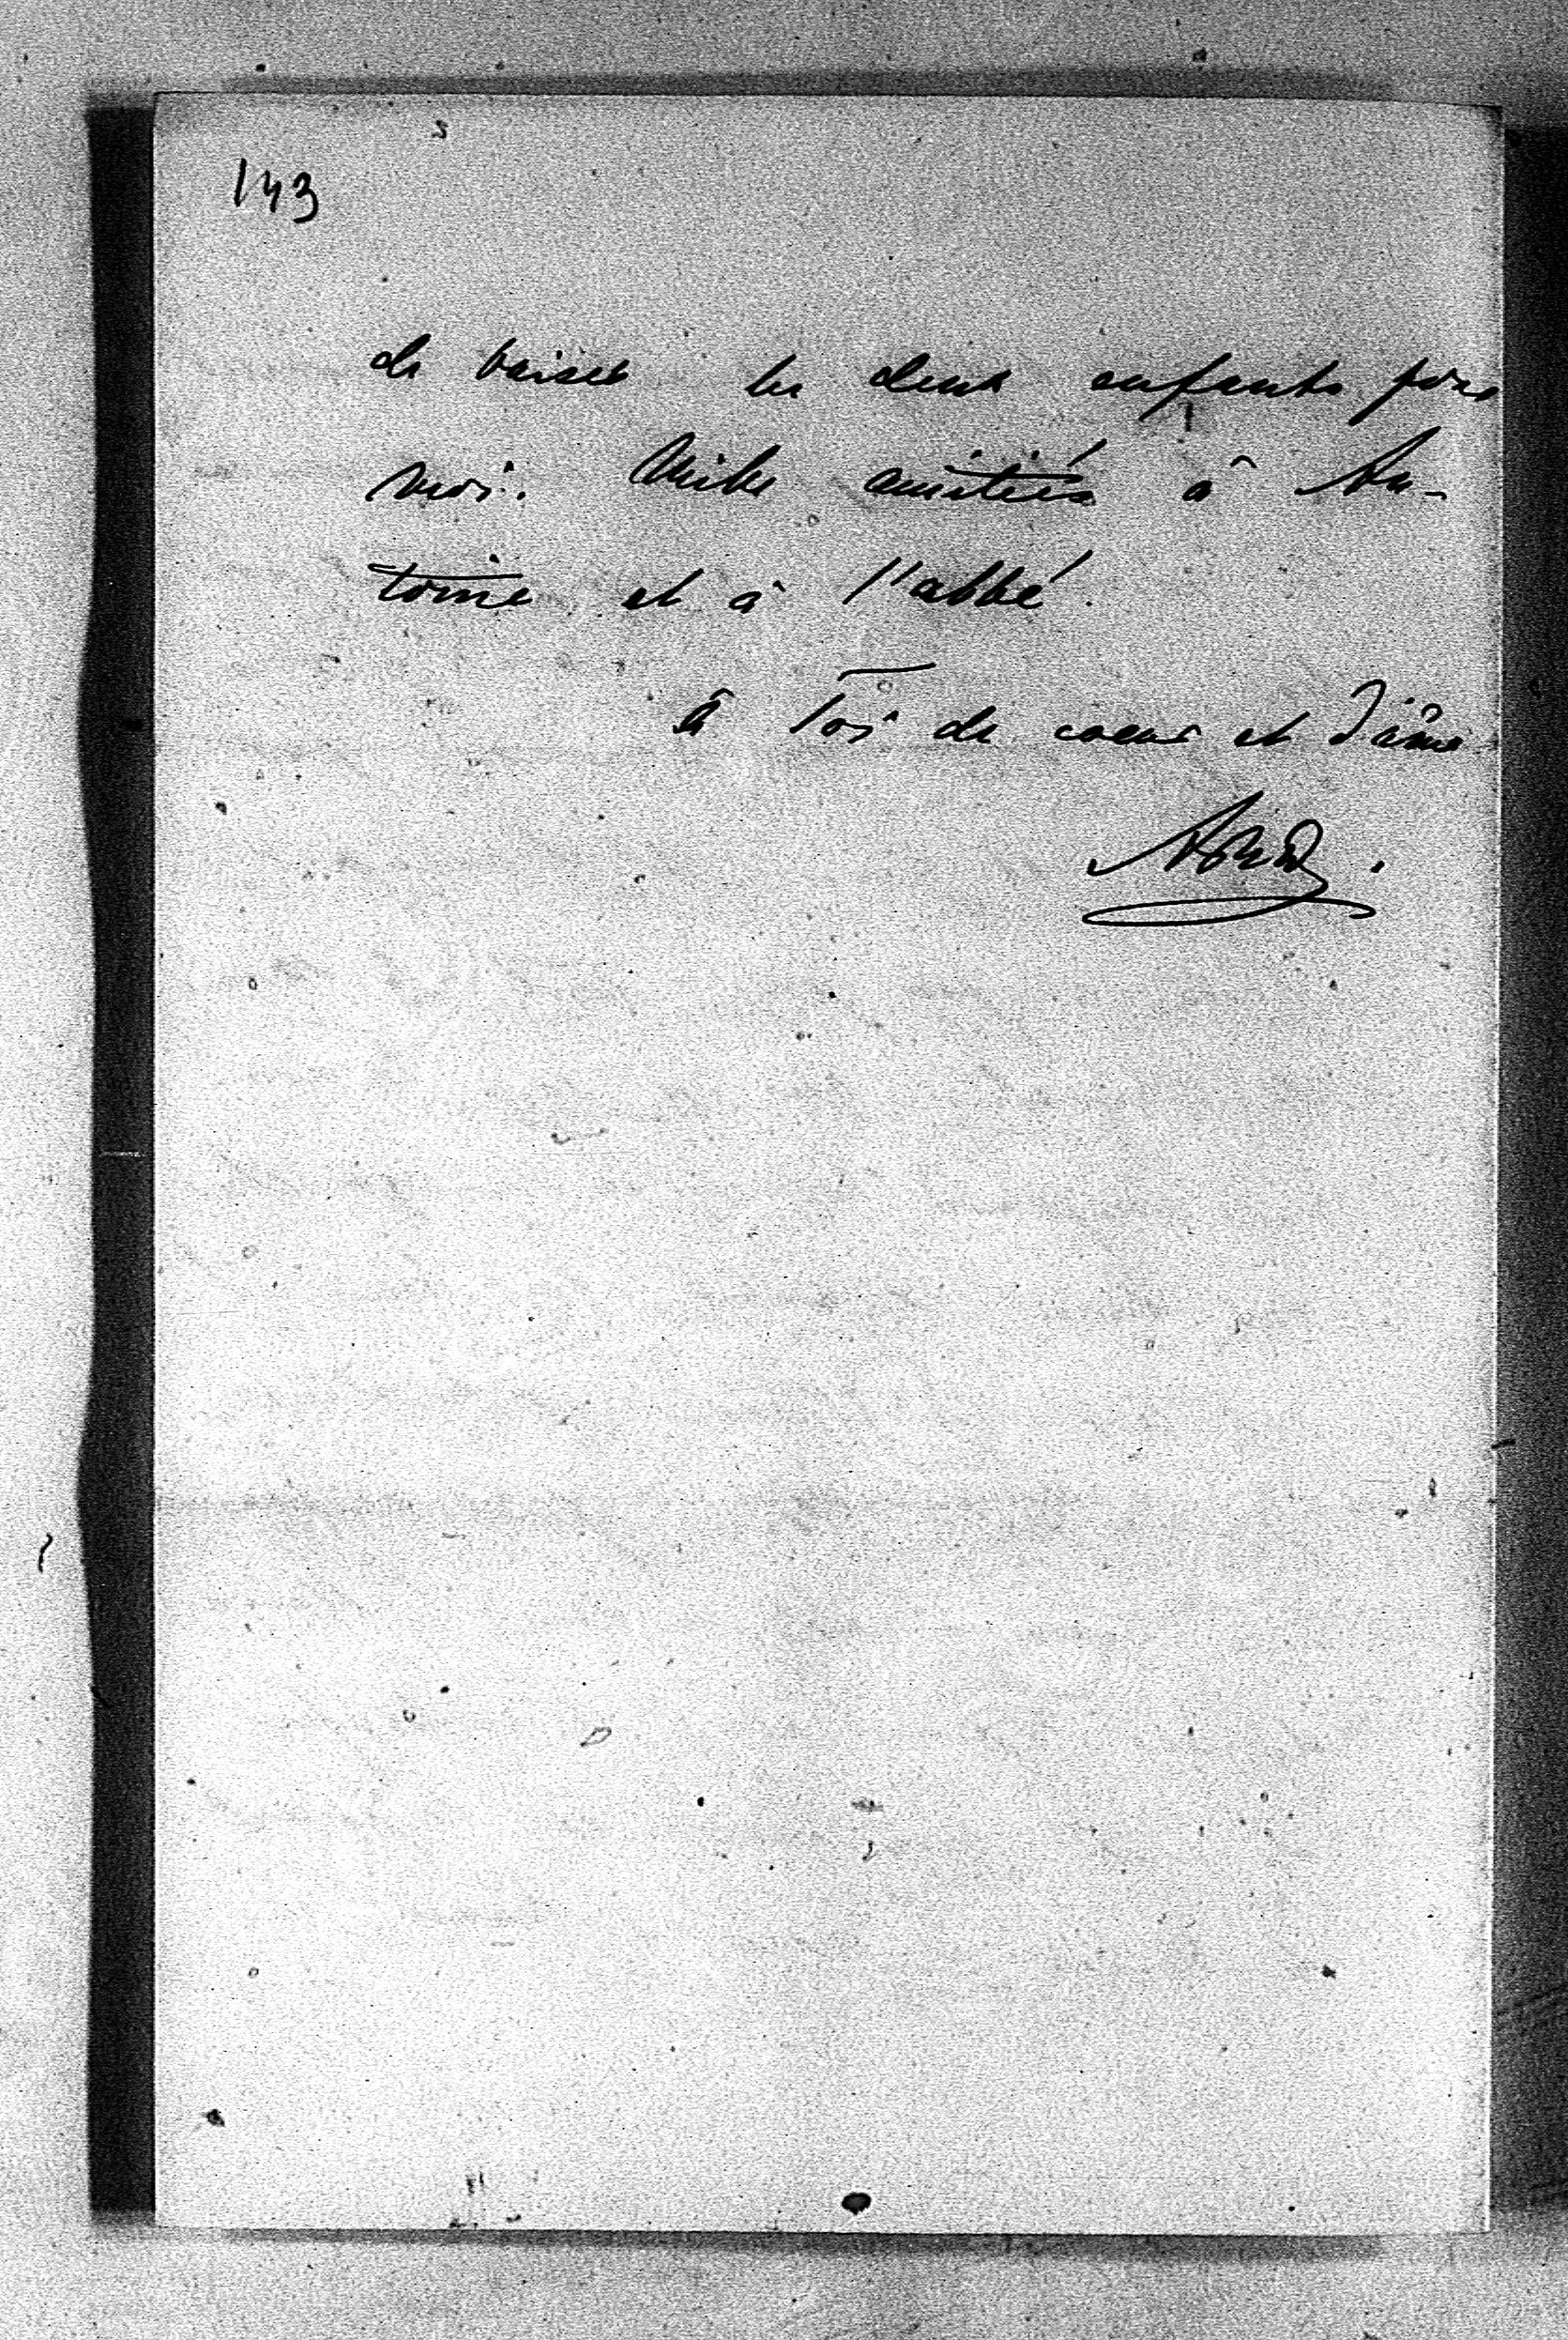 143
de baiser les deux enfants pour
moi. Mille amitiés à An-
toine et à l'abbé.
à Toi de coeur et d'âme